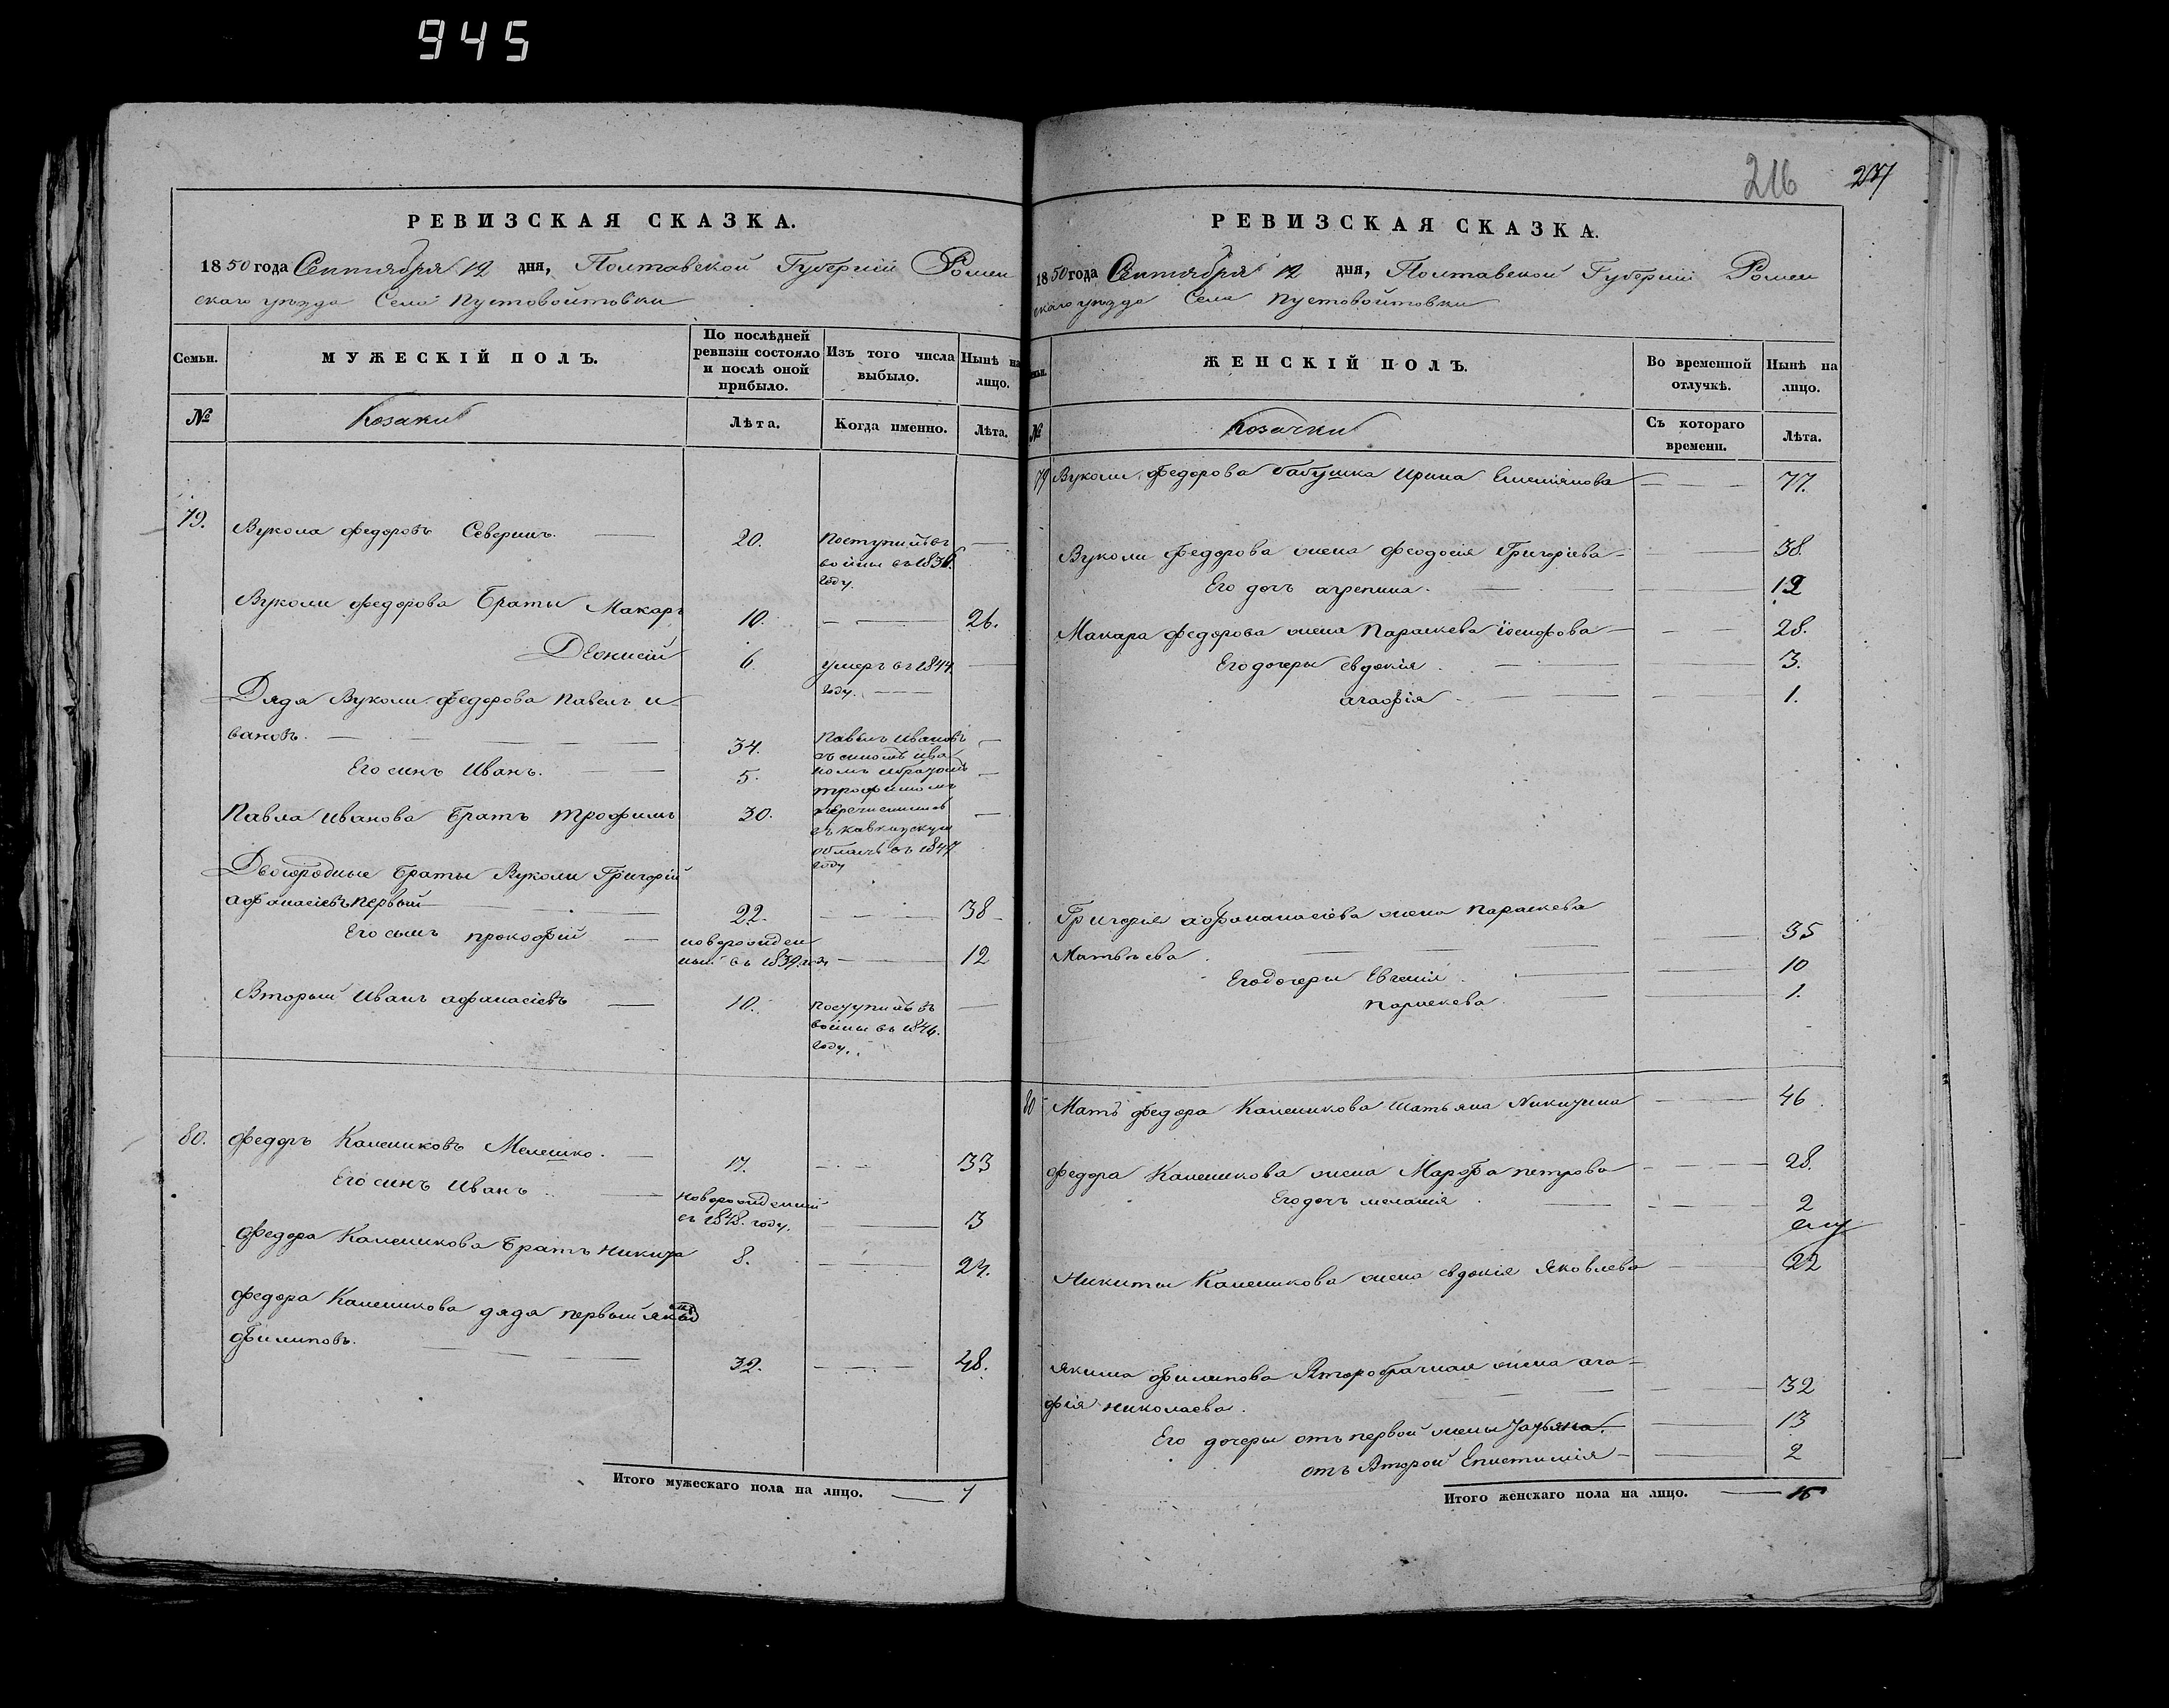 945
РЕВИЗСКАЯ СКАЗКА.
1850 года Сентября 12 дня, Полтавской Губернии Ромен
скаго уезда Села Пустовойтовки
Семьи.
МУЖЕСКІЙ ПОЛЪ.
По послѣдней ревизіи состояло и послѣ оной прибыло.
Изъ того числа выбыло.
Нынѣ на лицо.
№
Козаки
Лѣта.
Когда именно.
Лѣта.
79. Вукола федоровъ Северинъ. 20. Поступилъ въ
воины въ 1836
году.
Вуколи федорова Браты Макаръ 10. 26.
Деонисій 6. умеръ въ 1844
году.
Дядя Вуколи федорова Павелъ и-
вановъ. 34. Павелъ Ивановъ
съ сыномъ Ива
Его синъ Иванъ. 5. номъ и братомъ
трофимомъ
Павла Иванова Братъ Трофимъ 30. перечислились
въ Кавказскую
область въ 1847
году
Двоюродные Браты Вуколи Григорій
афанасіевъ первый 22. 38
Его сынъ прокофій новорожден
ный въ 1839 году 12
Вторый Иванъ афанасіевъ 10. поступилъ въ
воины въ 1846.
году.
80. федоръ Калениковъ Мелешко. 17. 33
Его синъ Иванъ новорожденній
въ 1848. году. 3
федора Каленикова Братъ Никита 8. 24.
федора Каленикова дядя первый Яким
филиповъ. 32. 48.
Итого мужескаго пола на лицо. 7
216 217
РЕВИЗСКАЯ СКАЗКА.
1850 года Сентября 12 дня, Полтавской Губерніи Ромен
скаго уезда Села Пустовойтовки
ЖЕНСКІЙ ПОЛЪ.
Во временной отлучкѣ.
Нынѣ на лицо.
№
Козачки
Съ котораго времени.
Лѣта.
79 Вуколи федорова бабушка Ирина Емеліянова 77.
Вуколи федорова жена феодосія Григоріева 38.
Его дочъ агрепина. 12
Макара федорова жена Параскева Іосифова 28.
Его дочеры евдокія 3.
агафія 1.
Григорія афананасіева жена параскева
Матвѣева 35
Его дочеры Евгенія 10
параскева 1.
80 Матъ федора Каленикова Татьяна Никитина 46
федора Каленикова жена Марфа петрова 28.
Его дочъ меланія 2
Никиты Каленикова жена евдокія Яковлева 22
Якима филипова Второбрачная жена ага-
фія николаева. 32
Его дочеры отъ первой жены Татьяна. 13
отъ Второй Епистимія 2
Итого женскаго пола на лицо. 15